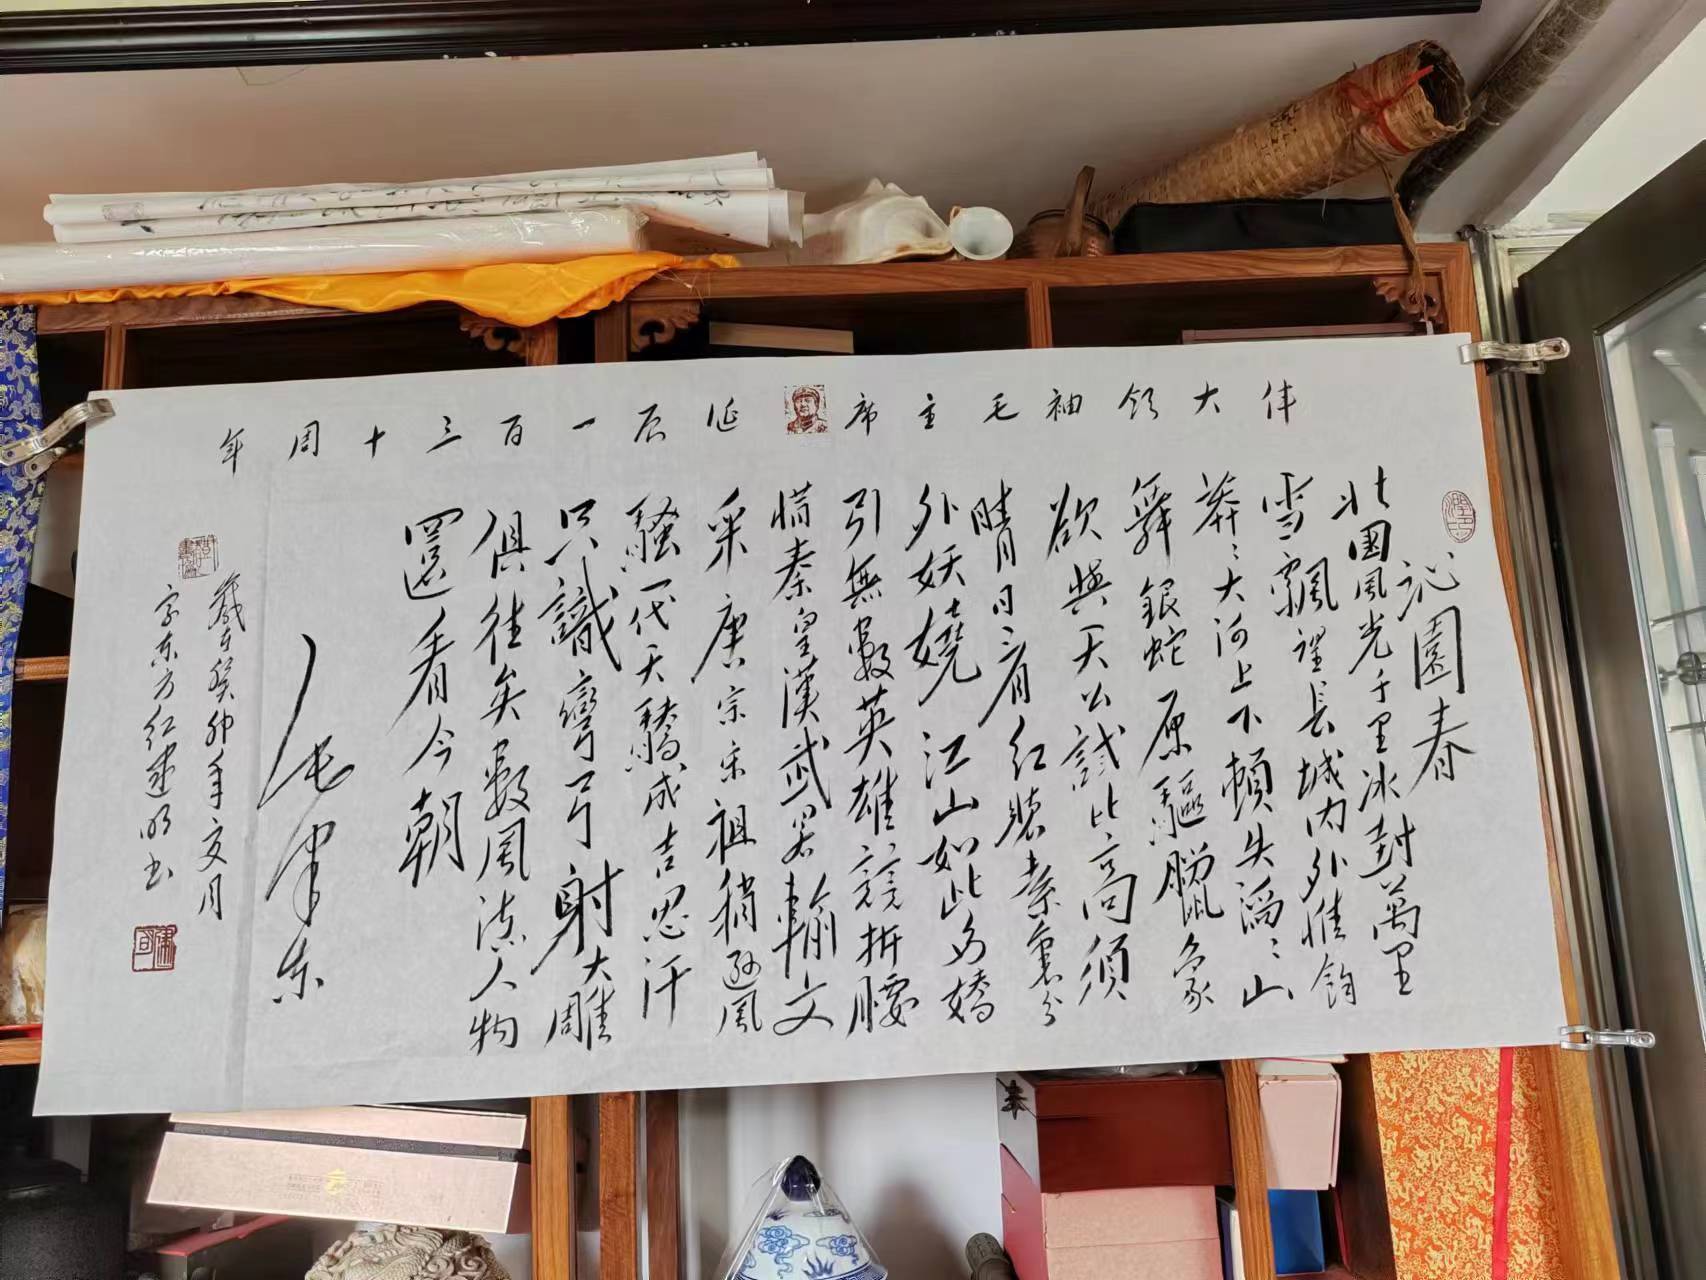 伟大领袖毛主席诞辰一百三十周年
沁園春
北國風光千里冰封萬里
雪飄望長城内外惟餘
莽〻大河上下頓失滔〻山
舞銀蛇原驅臘象
欲與天公試比高須
晴日看红裝素裹分
外妖嬈江山如此多嬌
引無數英雄競折腰
惜秦皇漢武畧輸文
采唐宗宋祖稍遜風
騷一代天驕成吉思汗
只識彎弓射大雕
俱往矣數風流人物
還看今朝
毛泽东
歲在癸卯年月
东方红建明书